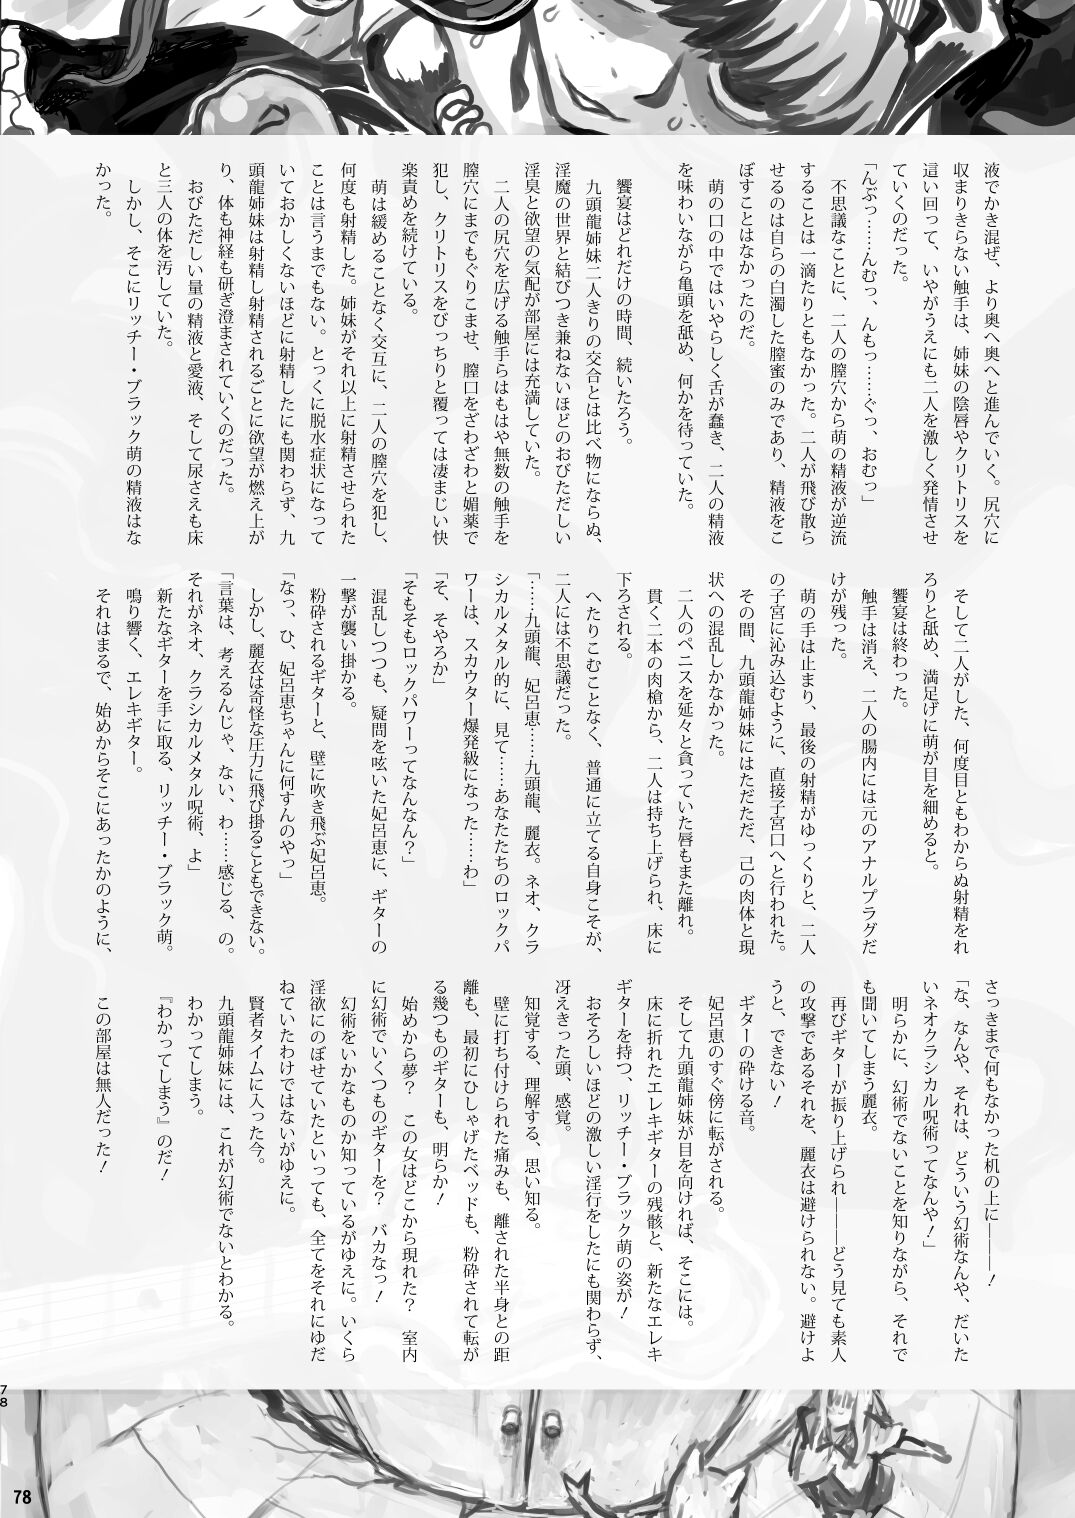 液でかき混ぜ、より奥へ奥へと進んでいく。尻穴に
収まりきらない触手は、姉妹の陰唇やクリトリスを
這い回って、いやがうえにも二人を激しく発情させ
ていくのだった。
「んぶっ……んむっ、んもっ……ぐっ、おむっ」
不思議なことに、二人の膣穴から萌の精液が逆流
することは一滴たりともなかった。二人が飛び散ら
せるのは自らの白濁した膣蜜のみであり、精液をこ
ぼすことはなかったのだ。
萌の口の中ではいやらしく舌が蠢き、二人の精液
を味わいながら亀頭を舐め、何かを待っていた。
饗宴はどれだけの時間、続いたろう。
九頭龍姉妹二人きりの交合とは比べ物にならぬ、
淫魔の世界と結びつき兼ねないほどのおびただしい
淫臭と欲望の気配が部屋には充満していた。
二人の尻穴を広げる触手らはもはや無数の触手を
膣穴にまでもぐりこませ、膣口をざわざわと媚薬で
犯し、クリトリスをびっちりと覆っては凄まじい快
楽責めを続けている。
萌は緩めることなく交互に、二人の膣穴を犯し、
何度も射精した。姉妹がそれ以上に射精させられた
ことは言うまでもない。とっくに脱水症状になって
いておかしくないほどに射精したにも関わらず、九
頭龍姉妹は射精し射精されるごとに欲望が燃え上が
り、体も神経も研ぎ澄まされていくのだった。
おびただしい量の精液と愛液、そして尿さえも床
と三人の体を汚していた。
しかし、そこにリッチー・ブラック萌の精液はな
かった。
そして二人がした、何度目ともわからぬ射精をれ
ろりと舐め、満足げに萌が目を細めると。
饗宴は終わった。
触手は消え、二人の腸内には元のアナルプラグだ
けが残った。
萌の手は止まり、最後の射精がゆっくりと、二人
の子宮に沁み込むように、直接子宮口へと行われた。
その間、九頭龍姉妹にはただただ、己の肉体と現
状への混乱しかなかった。
二人のペニスを延々と貪っていた唇もまた離れ。
貫く二本の肉槍から、二人は持ち上げられ、床に
下ろされる。
へたりこむことなく、普通に立てる自身こそが、
二人には不思議だった。
「……九頭龍、妃呂恵……九頭龍、麗衣。ネオ、クラ
シカルメタル的に、見て……あなたたちのロックパ
ワーは、スカウター爆発級になった……わ」
「そ、そやろか」
「そもそもロックパワーってなんなん？」
混乱しつつも、疑問を呟いた妃呂恵に、ギターの
一撃が襲い掛かる。
粉砕されるギターと、壁に吹き飛ぶ妃呂恵。
「なっ、ひ、妃呂恵ちゃんに何すんのやっ」
しかし、麗衣は奇怪な圧力に飛び掛ることもできない。
「言葉は、考えるんじゃ、ない、わ……感じる、の。
それがネオ、クラシカルメタル呪術、よ」
新たなギターを手に取る、リッチー・ブラック萌。
鳴り響く、エレキギター。
それはまるで、始めからそこにあったかのように、
さっきまで何もなかった机の上に―――！
「な、なんや、それは、どういう幻術なんや、だいた
いネオクラシカル呪術ってなんや！」
明らかに、幻術でないことを知りながら、それで
も聞いてしまう麗衣。
再びギターが振り上げられ―――どう見ても素人
の攻撃であるそれを、麗衣は避けられない。避けよ
うと、できない！
ギターの砕ける音。
妃呂恵のすぐ傍に転がされる。
そして九頭龍姉妹が目を向ければ、そこには。
床に折れたエレキギターの残骸と、新たなエレキ
ギターを持つ、リッチー・ブラック萌の姿が！
おそろしいほどの激しい淫行をしたにも関わらず、
冴えきった頭、感覚。
知覚する、理解する、思い知る。
壁に打ち付けられた痛みも、離された半身との距
離も、最初にひしゃげたベッドも、粉砕されて転が
る幾つものギターも、明らか！
始めから夢？　この女はどこから現れた？　室内
に幻術でいくつものギターを？　バカなっ！
幻術をいかなものか知っているがゆえに。いくら
淫欲にのぼせていたといっても、全てをそれにゆだ
ねていたわけではないがゆえに。
賢者タイムに入った今。
九頭龍姉妹には、これが幻術でないとわかる。
わかってしまう。
『わかってしまう』のだ！
この部屋は無人だった！
78
78